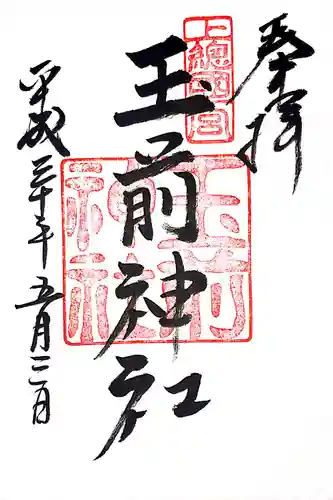 奉拝
上總四宮
玉前神社
玉前神社
平成三十年五月三日